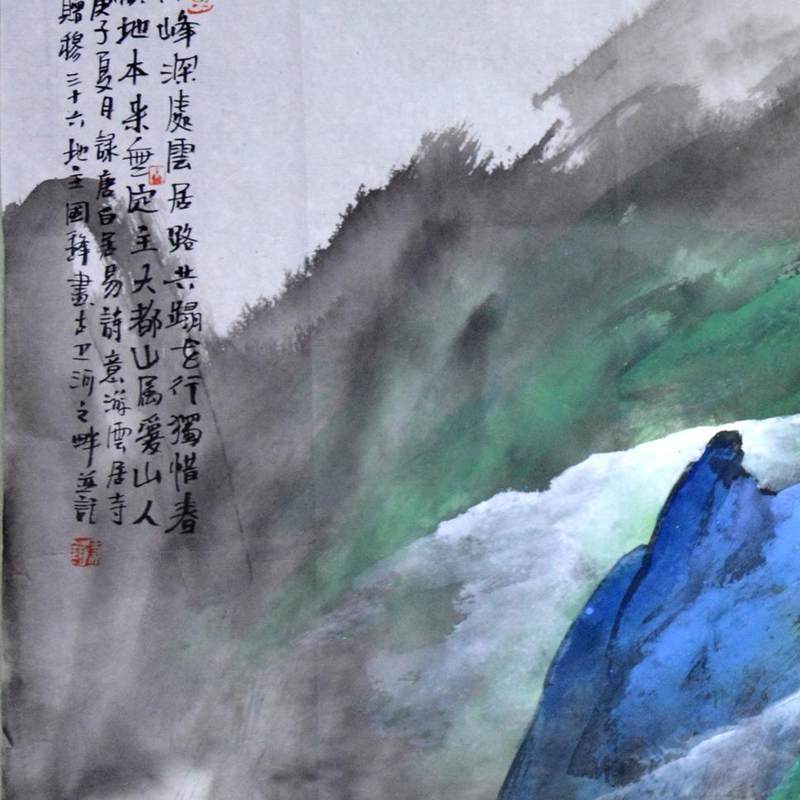 峰深處雲居路共蹋花行獨惜春
地本來無定主大都山属愛山人
庚子夏月録唐白居易詩意游雲居寺
贈穆三十六地主國祥畫于卫河之畔並記